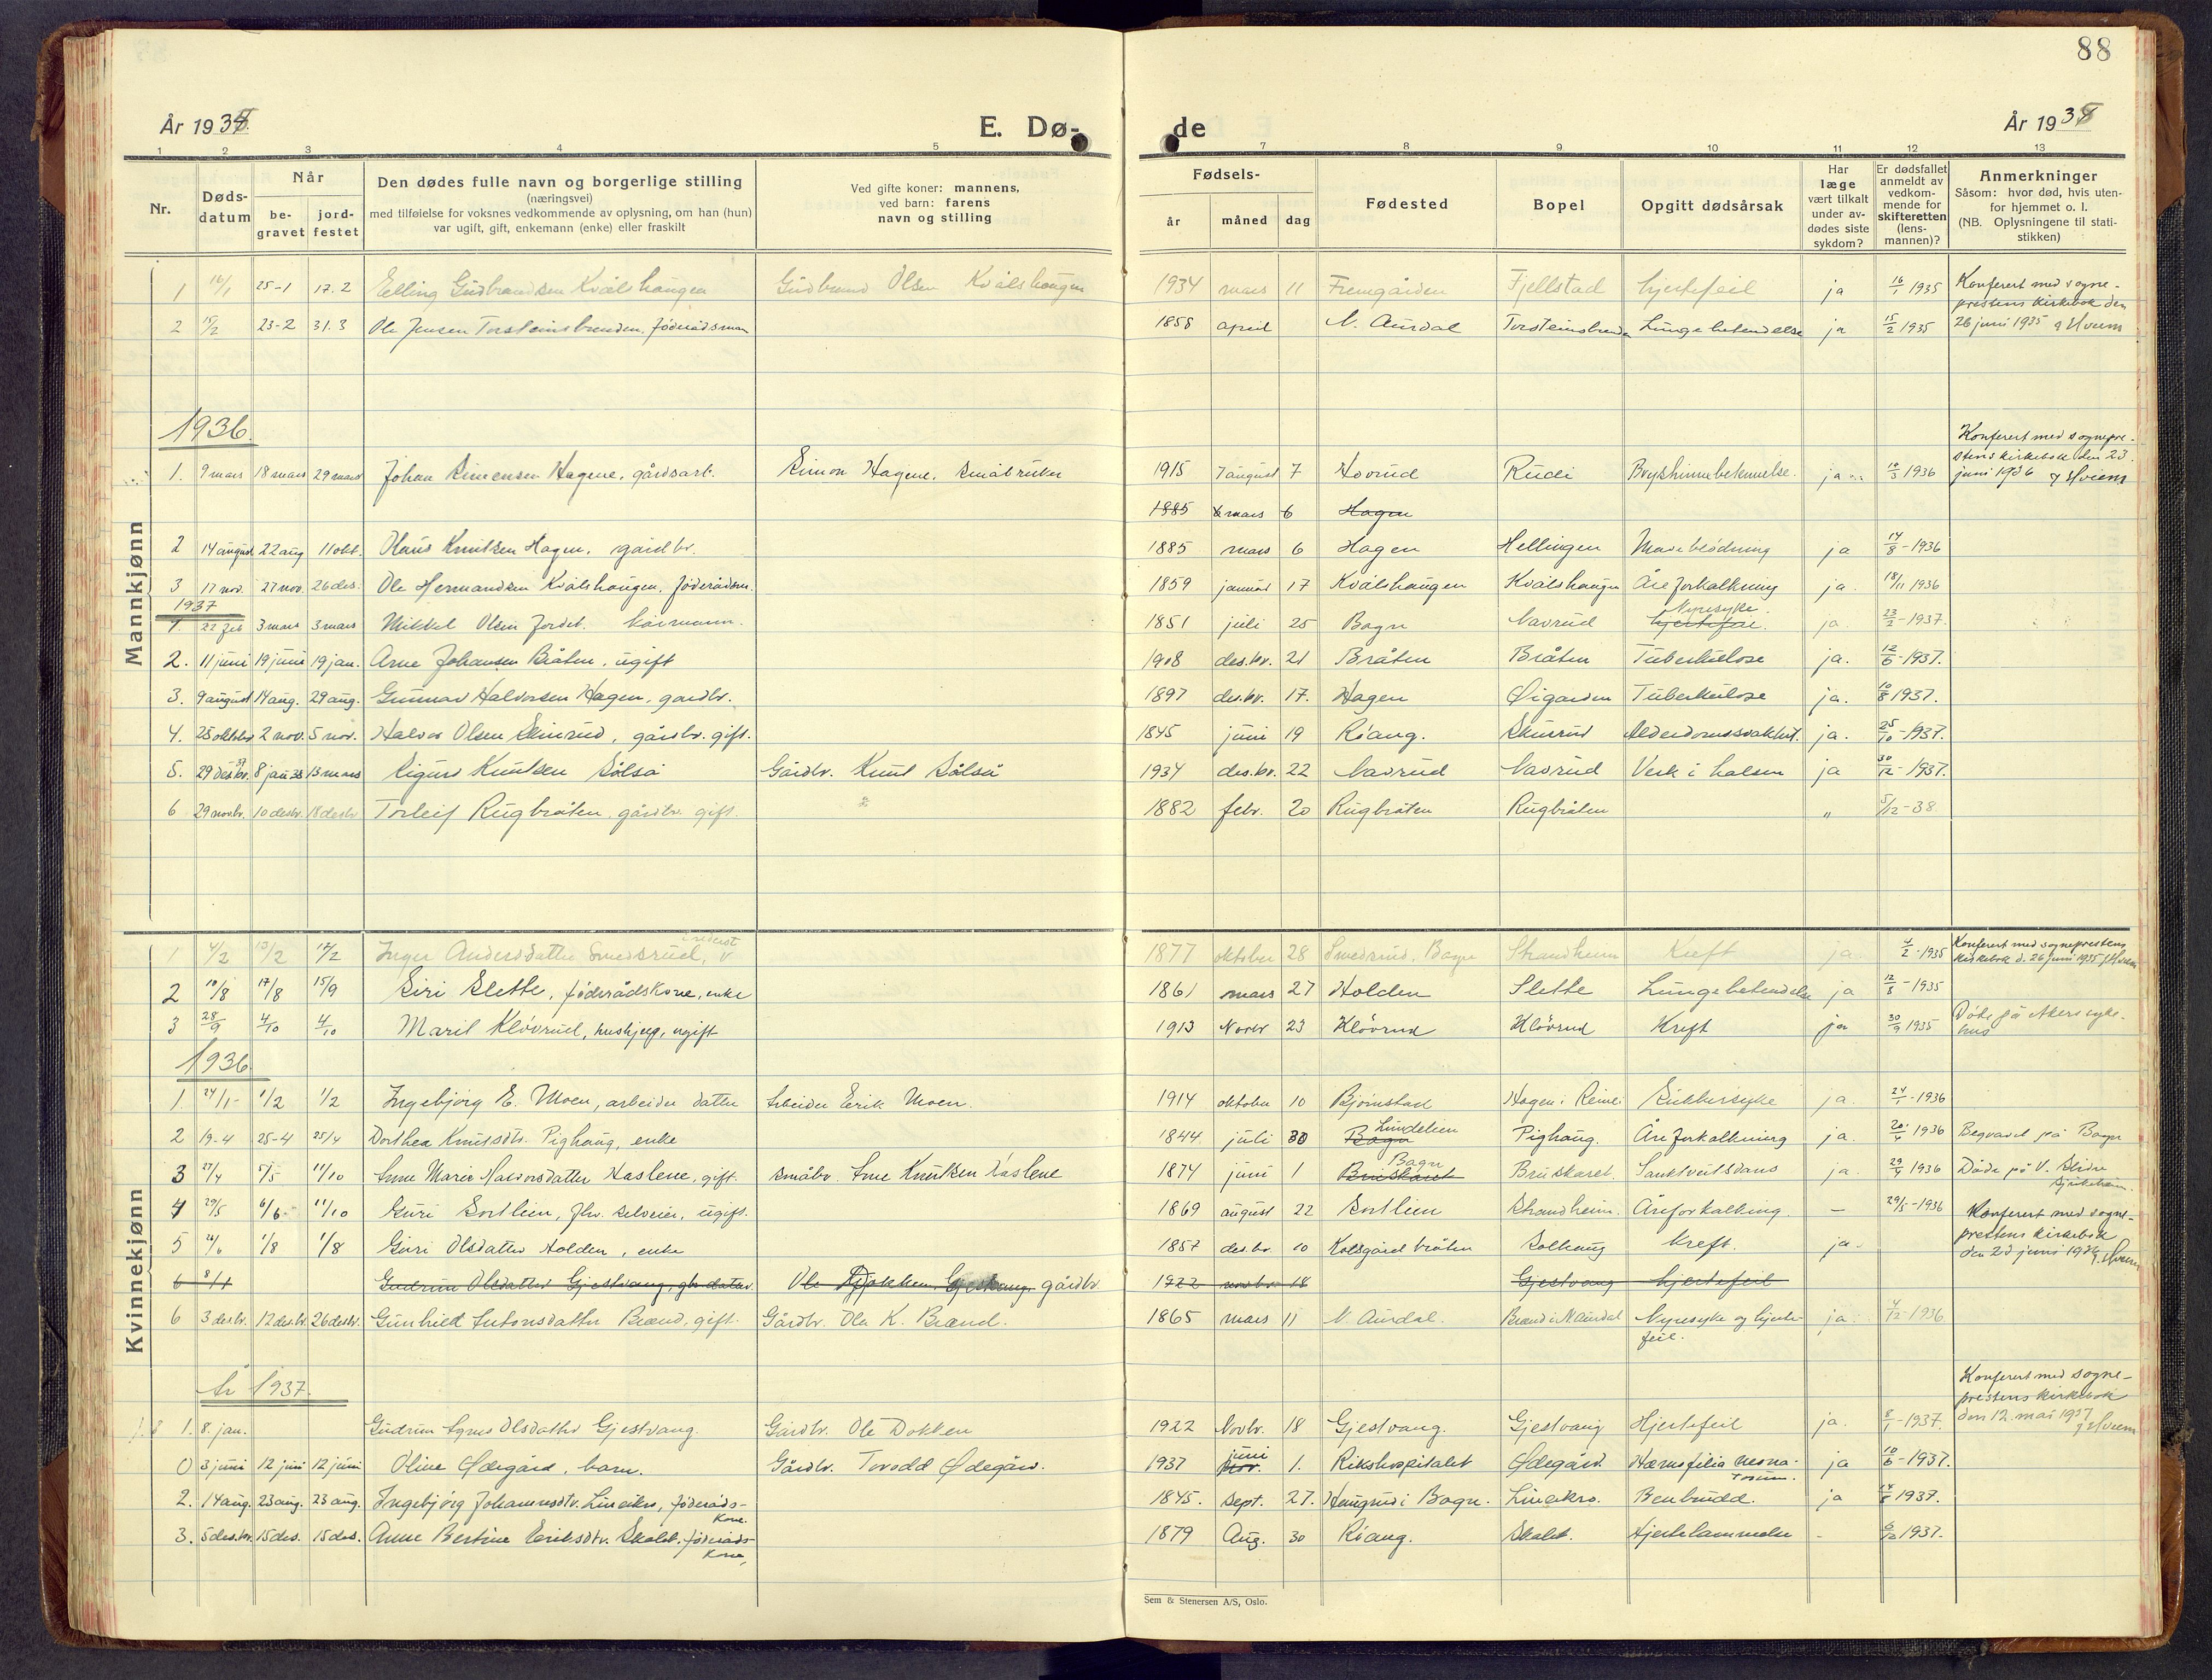 88
År 1935.
E. Dø-
de
År 1935
1 2 3 4 5 7 8 9 10 11 12 13
Nr.
Døds-
datum
Når
be-
gravet
jord-
festet
Den dødes fulle navn og borgerlige stilling
(næringsvei)
med tilføielse for voksnes vedkommende av oplysning, om han (hun)
var ugift, gift, enkemann (enke) eller fraskilt
Ved gifte koner: mannens,
ved barn: farens
navn og stilling
Fødsels-
år
måned
dag
Fødested
Bopel
Opgitt dødsårsak
Har
læge
vært tilkalt
under av-
dødes siste
sykdom?
Er dødsfallet
anmeldt av
vedkom-
mende for
skifteretten
(lens-
mannen)?
Anmerkninger
Såsom: hvor død, hvis uten-
for hjemmet o. l.
(NB. Oplysningene til stati-
stikken)
Mannkjønn
1 16/1 25-1 17.2 Elling Gudbrandsen Kvålshaugen Gudbrand Olsen Kvålshaugen 1934 mars 11 Fremgården Fjellstad hjertefeil ja 16/1 1935 Konferert med sogne-
prestens kirkebok den
2 15/2 23-2 31.3 Ole Jensen Torsteinsbrenden, föderådsman 1858 april N. Aurdal Torsteinsbrenden Lungebetendelse ja 15/2 1935 26 juni 1935 Hvem
1936.
Konferert med sognepre-
stens kirkebok den 23.
1. 9 mars 18 mars 29 mars Johan Simensen Hagene, gårdsarb. Simon Hagene, småbruker 1915 7 august 7 Hovrud Rudi Bryshinnebetennelse. ja 10/3 1936 juni 1936 Hvem
1885 6 mars 6 Hagen
2 14 august 22 aug 11 okt. Olaus Knutsen Hagen, gårdbr. 1885 mars 6 Hagen Hellingen Maveblödning ja 14/8-1936
3 17 nov. 27 nov. 26 des. Ole Hermandsen Kvålshaugen, föderådsm. 1859 januar 17 Kvålshaugen Kvålshaugen Åreforkalkning ja 18/11 1936
1937
1. 22 feb 3 mars 3 mars Mikkel Olsen Jordet. kårmann. 1851 juli 25 Bagn Navrud hjertefeil. Nyresyke. ja. 23/2-1937.
2. 11 juni 19 juni 19 jan. Arne Johansen Bråten, ugift 1908 des.br. 21 Bråten Bråten Tuberkulose ja. 12/6-1937.
3. 9 august 14 aug. 29 aug. Gunnar Halvorsen Hagen, gardbr. 1897 des.br. 17. Hagen Øigarden Tuberkulose ja. 10/8 1937.
4. 25 oktober 2 nov. 5 nov. Halvor Olsen Skinrud, gårdbr. gift. 1845 juni 19 Röang. Skinrud Alderdomssvakhet. ja. 25/10-1937.
5. 29 des.br. 37 8 jan 38 13 mars Sigurd Knutsen Sölså Gårdbr. Knut Sölså 1934 des.br. 22 Navrud Navrud Verk i halsen ja 30/12-1937.
6 29 nov.br. 10 desbr. 18 desbr Torleif Rugbråten, gårdbr. gift. " 1882 febr. 20 Rugbråten Rugbråten " 5/12-38
Kvinnekjønn
1 4/2 13/2 17/2 Inger Andersdatter Smedsrud, 1877 oktober 28 Smedsrud, Bagn Strandheim Kreft ja 4/2-1935 Konferert med sogneprestens
kirkebok d. 26 juni 1935 Hvem
2 10/8 17/8 15/9 Siri Slette, föderådskone, enke 1861 mars 27 Holden Slette Lungebetendelse ja 12/8-1935
3 28/9 4/10 4/10 Marit Klövrud, hushjelp, ugift 1913 Novbr 23 Klövrud Klövrud Kreft ja 30/9 1935 Döde på Akers syke-
hus
1936
1. 24/1- 1/2 1/2 Ingebjörg E. Moen, arbeider datter Arbeider Erik Moen. 1914 oktober 10 Björnstad Hagen i Reinli Sukkersyke ja. 24/1-1936
2 19-4 25-4 25/4 Dorthea Knutsdtr. Pighaug, enke 1844 juli 30 Bagn Lundelien Pighaug. Åreforkalkning ja. 20/4 1936 Begravet på Bagn
3 27/4 5/5 11/10 Anne Marie Halvorsdatter Haslene, gift. småbr. Arne Knutsen Haslene 1874 juni 1 Bruskaret Bagn Bruskaret. Sanktveitsdans ja. 29/4 1936 Döde på V. Slidre
Sjukeheim.
4 29/5 6/6- 11/10 Guri Sortlien, fhv. selveier, ugift. 1869 august 22 Sortlien Strandheim. Åreforkalking. - 29/5-1936 Konferert med sogne-
prestens kirkebok
5 24/6 1/8 1/8 Guri Olsdatter Holden, enke 1857 des.br. 10 Kolsgård bråten Solhaug Kreft. ja- den 23 juni 1936 Hvem
6 8/1 Gudrun Olsdatter Gjestvang, gbr datter Ole Dokken Gjestvang, gårdbr. 1922 novbr 18 Gjestvang hjertefeil
6 3 des.br. 12 des.br. 26 desbr. Gunhild Antonsdatter Brænd, gift. Gårdbr. Ole K. Brænd. 1865 mars 11 N. Aurdal. Brænd i N. Aurdal Nyresyke og hjerte-
feil. ja. 4/12-1936
År 1937.
Konferert med sogne-
prestens kirkebok
1. 8. jan. Gudrun Agnes Olsdatter Gjestvang. Gardbr. Ole Dokken 1922 Novbr. 18 Gjestvang. Gjestvang Hjertefeil ja. 8/1-1937. den 12. mai 1937 Hvem
0 3 juni 12 juni 12 juni Oline Ødegård, barn. Gårdbr. Torodd Ødegård. 1937 nov. juni 1. Rikshospitalet Ødegård. Hæmofilia neona-
torum. ja 10/6-1937.
2. 14 aug. 23 aug. 23 aug. Ingebjörg Johannesdtr. Lineikro, föderåds-
kone. 1845. sept. 27. Haugrud i Bagn. Lineikro. Benbrudd. ja 14/8 1937.
3. 5 des.br. 15 des. 15 des. Anne Bertine Eriksdtr. Skolet, föderåds-
kone, 1879 Aug. 30 Röang. Skolet. Hjertelammelse - 6/12 1937.
Sem & Stenersen A/S, Oslo.